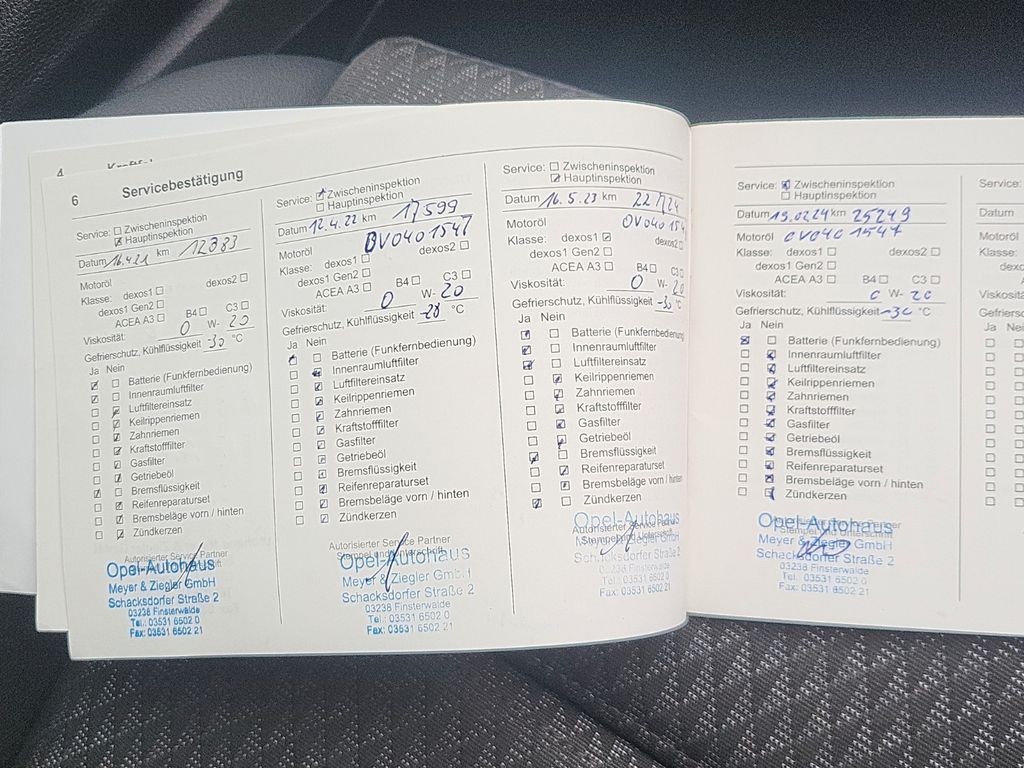 4
6
Servicebestätigung
Service: Zwischeninspektion
Hauptinspektion
Datum 16.4.21 km 12383
Motoröl
Klasse: dexos1 dexos2
dexos1 Gen2
ACEA A3 B4 C3
Viskosität: 0 W- 20
Gefrierschutz, Kühlflüssigkeit -30 °C
Ja Nein
Batterie (Funkfernbedienung)
Innenraumluftfilter
Luftfiltereinsatz
Keilrippenriemen
Zahnriemen
Kraftstofffilter
Gasfilter
Getriebeöl
Bremsflüssigkeit
Reifenreparaturset
Bremsbeläge vorn / hinten
Zündkerzen
Autorisierter Service Partner
Opel-Autohaus
Meyer & Ziegler GmbH
Schacksdorfer Straße 2
03238 Finsterwalde
Tel.: 03531 6502 0
Fax: 03531 6502 21
Service: Zwischeninspektion
Hauptinspektion
Datum 12.4.22 km 17599
Motoröl OV0401547
Klasse: dexos1 dexos2
dexos1 Gen2
ACEA A3 B4 C3
Viskosität: 0 W- 20
Gefrierschutz, Kühlflüssigkeit -28 °C
Ja Nein
Batterie (Funkfernbedienung)
Innenraumluftfilter
Luftfiltereinsatz
Keilrippenriemen
Zahnriemen
Kraftstofffilter
Gasfilter
Getriebeöl
Bremsflüssigkeit
Reifenreparaturset
Bremsbeläge vorn / hinten
Zündkerzen
Autorisierter Service Partner
Stempel und Unterschrift
Opel-Autohaus
Meyer & Ziegler GmbH
Schacksdorfer Straße 2
03238 Finsterwalde
Tel.: 03531 6502 0
Fax: 03531 6502 21
Service: Zwischeninspektion
Hauptinspektion
Datum 16.5.23 km 22124
Motoröl OV040154
Klasse: dexos1 dexos2
dexos1 Gen2
ACEA A3 B4 C3
Viskosität: 0 W- 20
Gefrierschutz, Kühlflüssigkeit -30 °C
Ja Nein
Batterie (Funkfernbedienung)
Innenraumluftfilter
Luftfiltereinsatz
Keilrippenriemen
Zahnriemen
Kraftstofffilter
Gasfilter
Getriebeöl
Bremsflüssigkeit
Reifenreparaturset
Bremsbeläge vorn / hinten
Zündkerzen
Autorisierter Service Partner
Stempel und Unterschrift
Opel-Autohaus
Meyer & Ziegler GmbH
Schacksdorfer Straße 2
03238 Finsterwalde
Tel.: 03531 6502 0
Fax: 03531 6502 21
Service: Zwischeninspektion
Hauptinspektion
Datum 19.02.24 km 25249
Motoröl OV0401547
Klasse: dexos1 dexos2
dexos1 Gen2
ACEA A3 B4 C3
Viskosität: 0 W- 20
Gefrierschutz, Kühlflüssigkeit -30 °C
Ja Nein
Batterie (Funkfernbedienung)
Innenraumluftfilter
Luftfiltereinsatz
Keilrippenriemen
Zahnriemen
Kraftstofffilter
Gasfilter
Getriebeöl
Bremsflüssigkeit
Reifenreparaturset
Bremsbeläge vorn / hinten
Zündkerzen
Autorisierter Service Partner
Stempel und Unterschrift
Opel-Autohaus
Meyer & Ziegler GmbH
Schacksdorfer Straße 2
03238 Finsterwalde
Tel.: 03531 6502 0
Fax: 03531 6502 21
Service:
Datum
Motoröl
Klasse:
Viskosität
Gefriers
Ja Nein